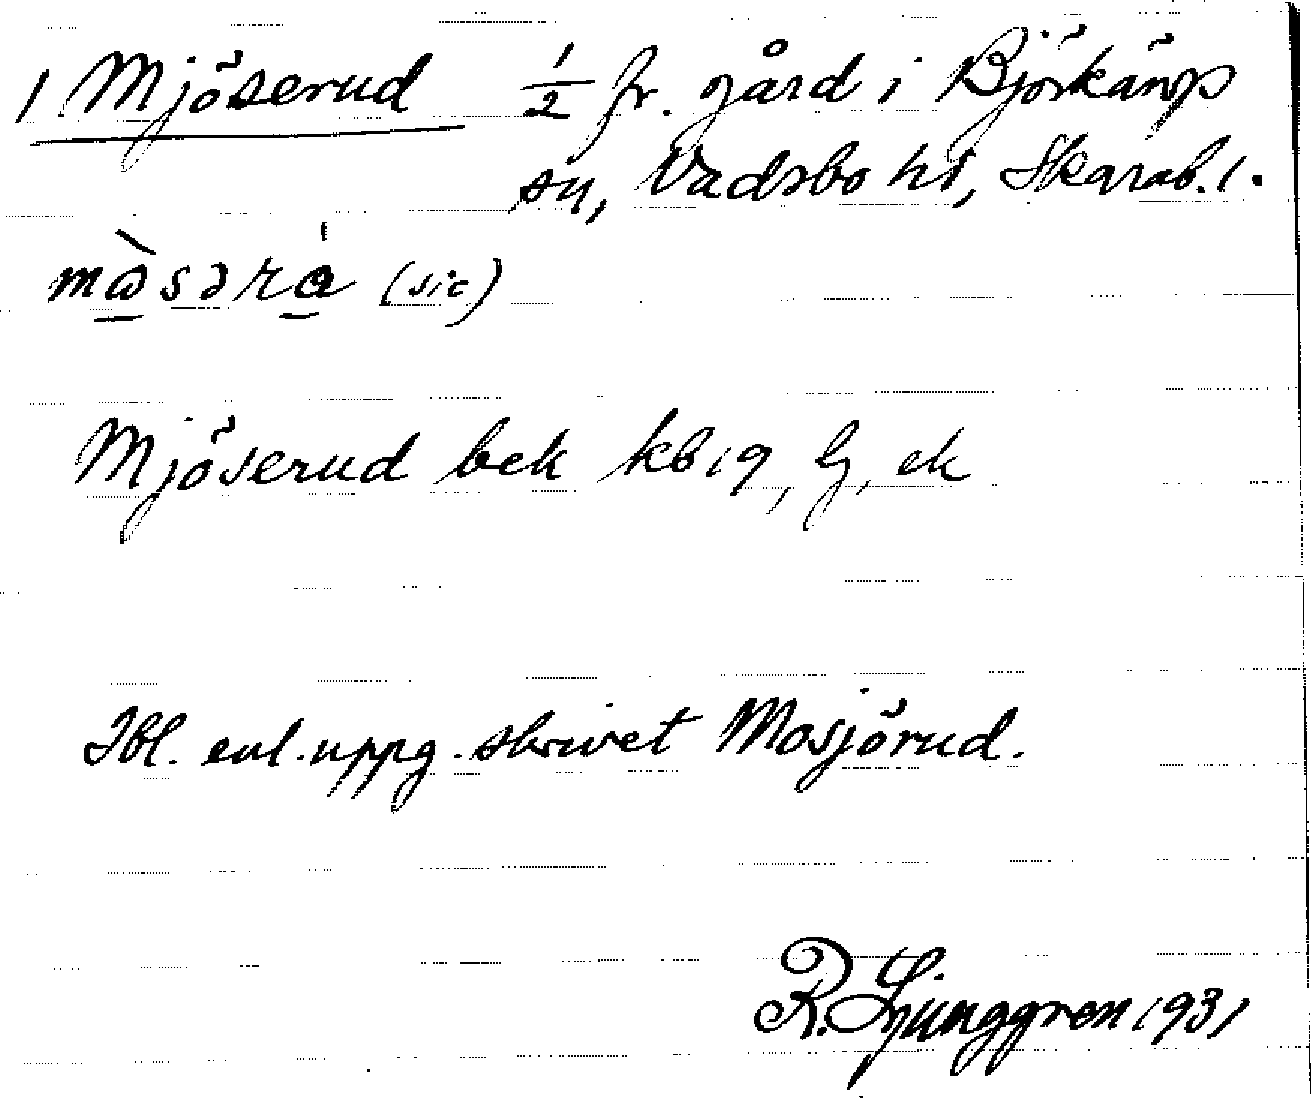 1 Mjöserud 1/2 fr. gård i Björkäng
sn, Vadsbo hd, Skarab. l.
(sic)
Mjöserud bek kb 19, lj, ek
Ibl. enl. uppg. skrivet Mosjörud.
R. Ljunggren 1931